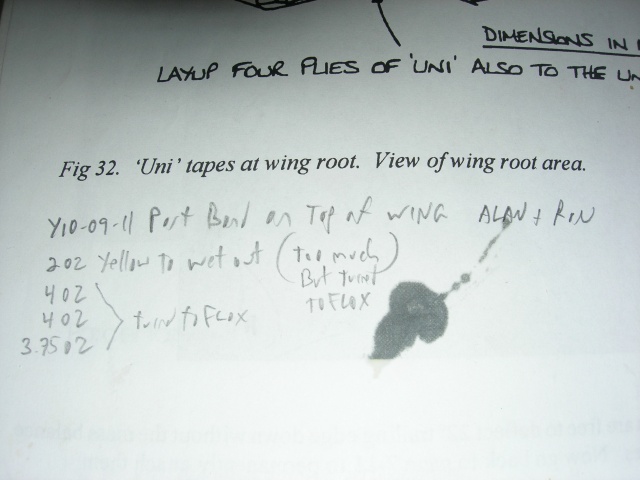 DIMENSIONS IN
LAYUP FOUR PLIES OF 'UNI' ALSO TO THE UN
Fig 32. 'Uni' tapes at wing root. View of wing root area.
Y10-09-11 Port Bond on Top of WING ALAN + RON
2 OZ Yellow To wet out (too much)
But turned
TO FLOX
4 OZ
4 OZ
3.75 OZ
to FLOX